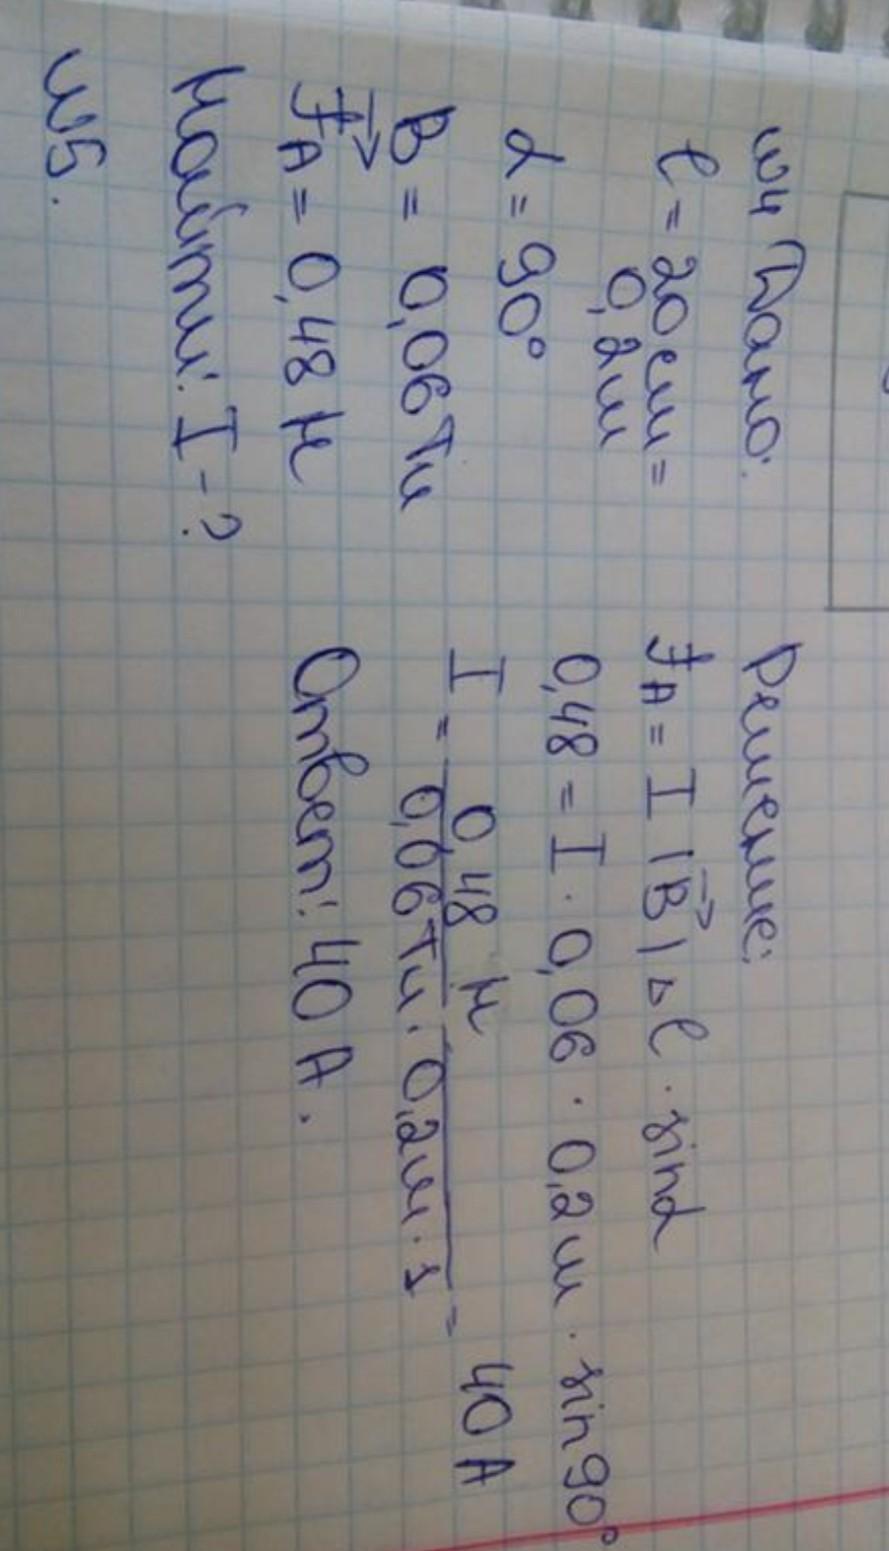 №4 Дано:
l = 20 см =
0,2 м
α = 90°
B = 0,06 Тл
F⃗A = 0,48 Н
Найти: I - ?
Решение:
FA = I |B⃗| Δl · sinα
0,48 = I · 0,06 · 0,2 м · sin 90°
I = 0,48 Н / 0,06 Тл · 0,2 м · 1 = 40 А
Ответ: 40 А.
№5.